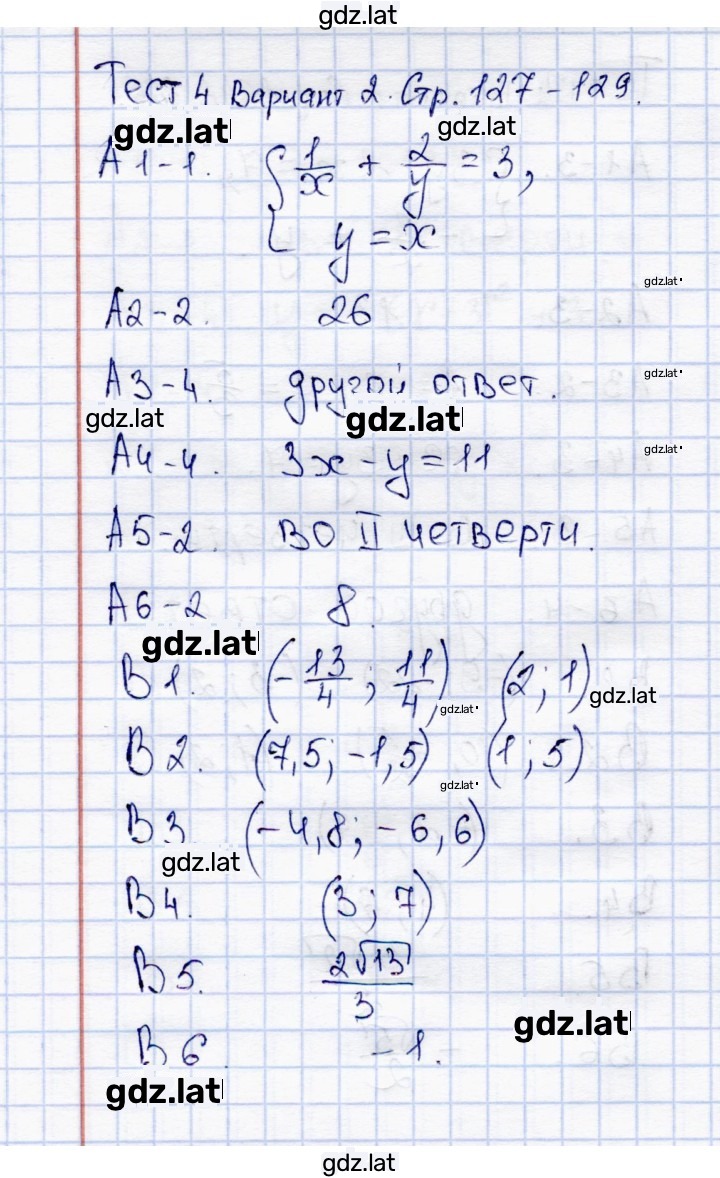 gdz.lat
Тест 4 Вариант 2. Стр. 127 - 129.
gdz.lat
gdz.lat
А1-1. { 1/x + 2/y = 3,
y = x
gdz.lat
А2-2. 26
А3-4. другой ответ.
gdz.lat
gdz.lat
gdz.lat
А4-4. 3x - y = 11
gdz.lat
А5-2. во II четверти.
А6-2 8.
gdz.lat
В1. (-13/4; 11/4) (2; 1)
gdz.lat
gdz.lat
В2. (7,5; -1,5) (1; 5)
gdz.lat
В3 (-4,8; -6,6)
gdz.lat
В4. (3; 7)
В5. 2√13/3
gdz.lat
В6. -1.
gdz.lat
gdz.lat